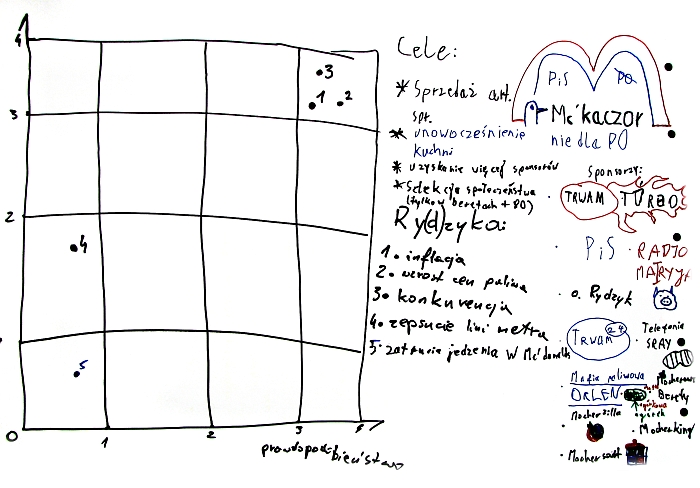 4
3
2
0
1
2
3
3
1
2
4
5
prawdopodobieństwo
Cele:
* Sprzedaż art.
spż.
* unowocześnienie
kuchni
* uzyskanie więcej sponsorów
* Selekcja społoczeństwa
(tylko w beretach + PO)
Ry(d)zyka:
1. inflacja
2. wzrost cen paliwa
3. konkurencja
4. zepsucie lini metra
5. zatrucie jedzenia w Mc'donalds
PiS
PO
Mc'kaczor
nie dla PO
Sponsorzy:
TRWAM
TURBO
PiS
RADIO
MARYJA
o. Rydzyk
TRWAM 24
Telegania
SRAY
Mafia paliwowa
ORLEN
Berety
Mocherzilla
Mocherking